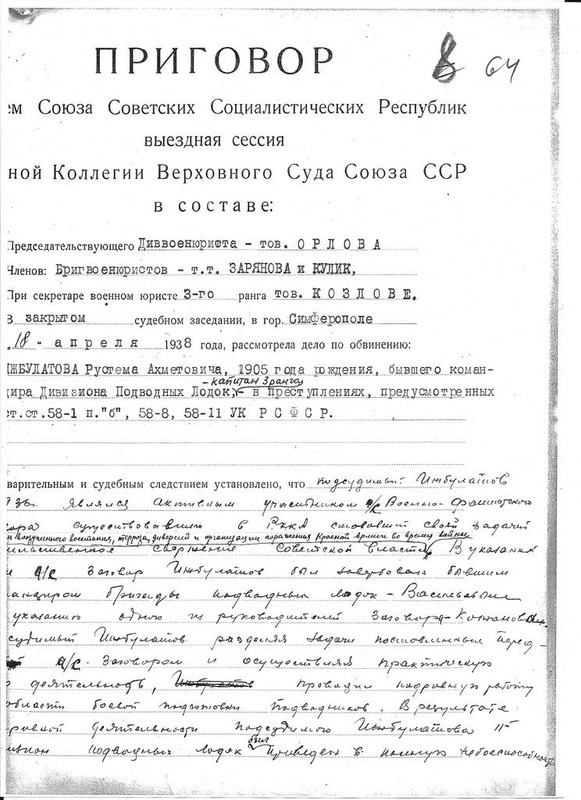 ПРИГОВОР
64
ем Союза Советских Социалистических Республик
выездная сессия
ной Коллегии Верховного Суда Союза ССР
в составе:
Председательствующего Диввоенюриста - тов. ОРЛОВА
Членов: Бригвоенюристов - т.т. ЗАРЯНОВА и КУЛИК,
При секретаре военном юристе 3-го ранга тов. КОЗЛОВЕ.
В закрытом судебном заседании, в гор. Симферополе
18 - апреля 1938 года, рассмотрела дело по обвинению:
ЖБУЛАТОВА Рустема Ахметовича, 1905 года рождения, бывшего коман-
- капитан 3 ранга
ира Дивизиона Подводных Лодок, - в преступлениях, предусмотренных
ст.ст.58-1 п."б", 58-8, 58-11 УК РСФСР.
варительным и судебным следствием установлено, что подсудимый Инбулатов
являлся активным участником а/с Военно-фашистского
существовавшего в РККА ставивший своей задачей
вооруженного восстания, террора, диверсий и организации поражения Красной армии во время войны
насильственное свержение Советской власти. В указанный
а/с заговор Инбулатов был завербован бывшим
командиром бригады подводных лодок - Васильевым
указанию одного из руководителей заговора - Кожанова
судимый Инбулатов разделяя задачи поставленные перед
а/с заговором и осуществляя практическую
деятельность, проводил подрывную работу
области боевой подготовки подводников. В результате
деятельности подсудимого Инбулатова
подводных лодок был приведен в полную небоеспособность